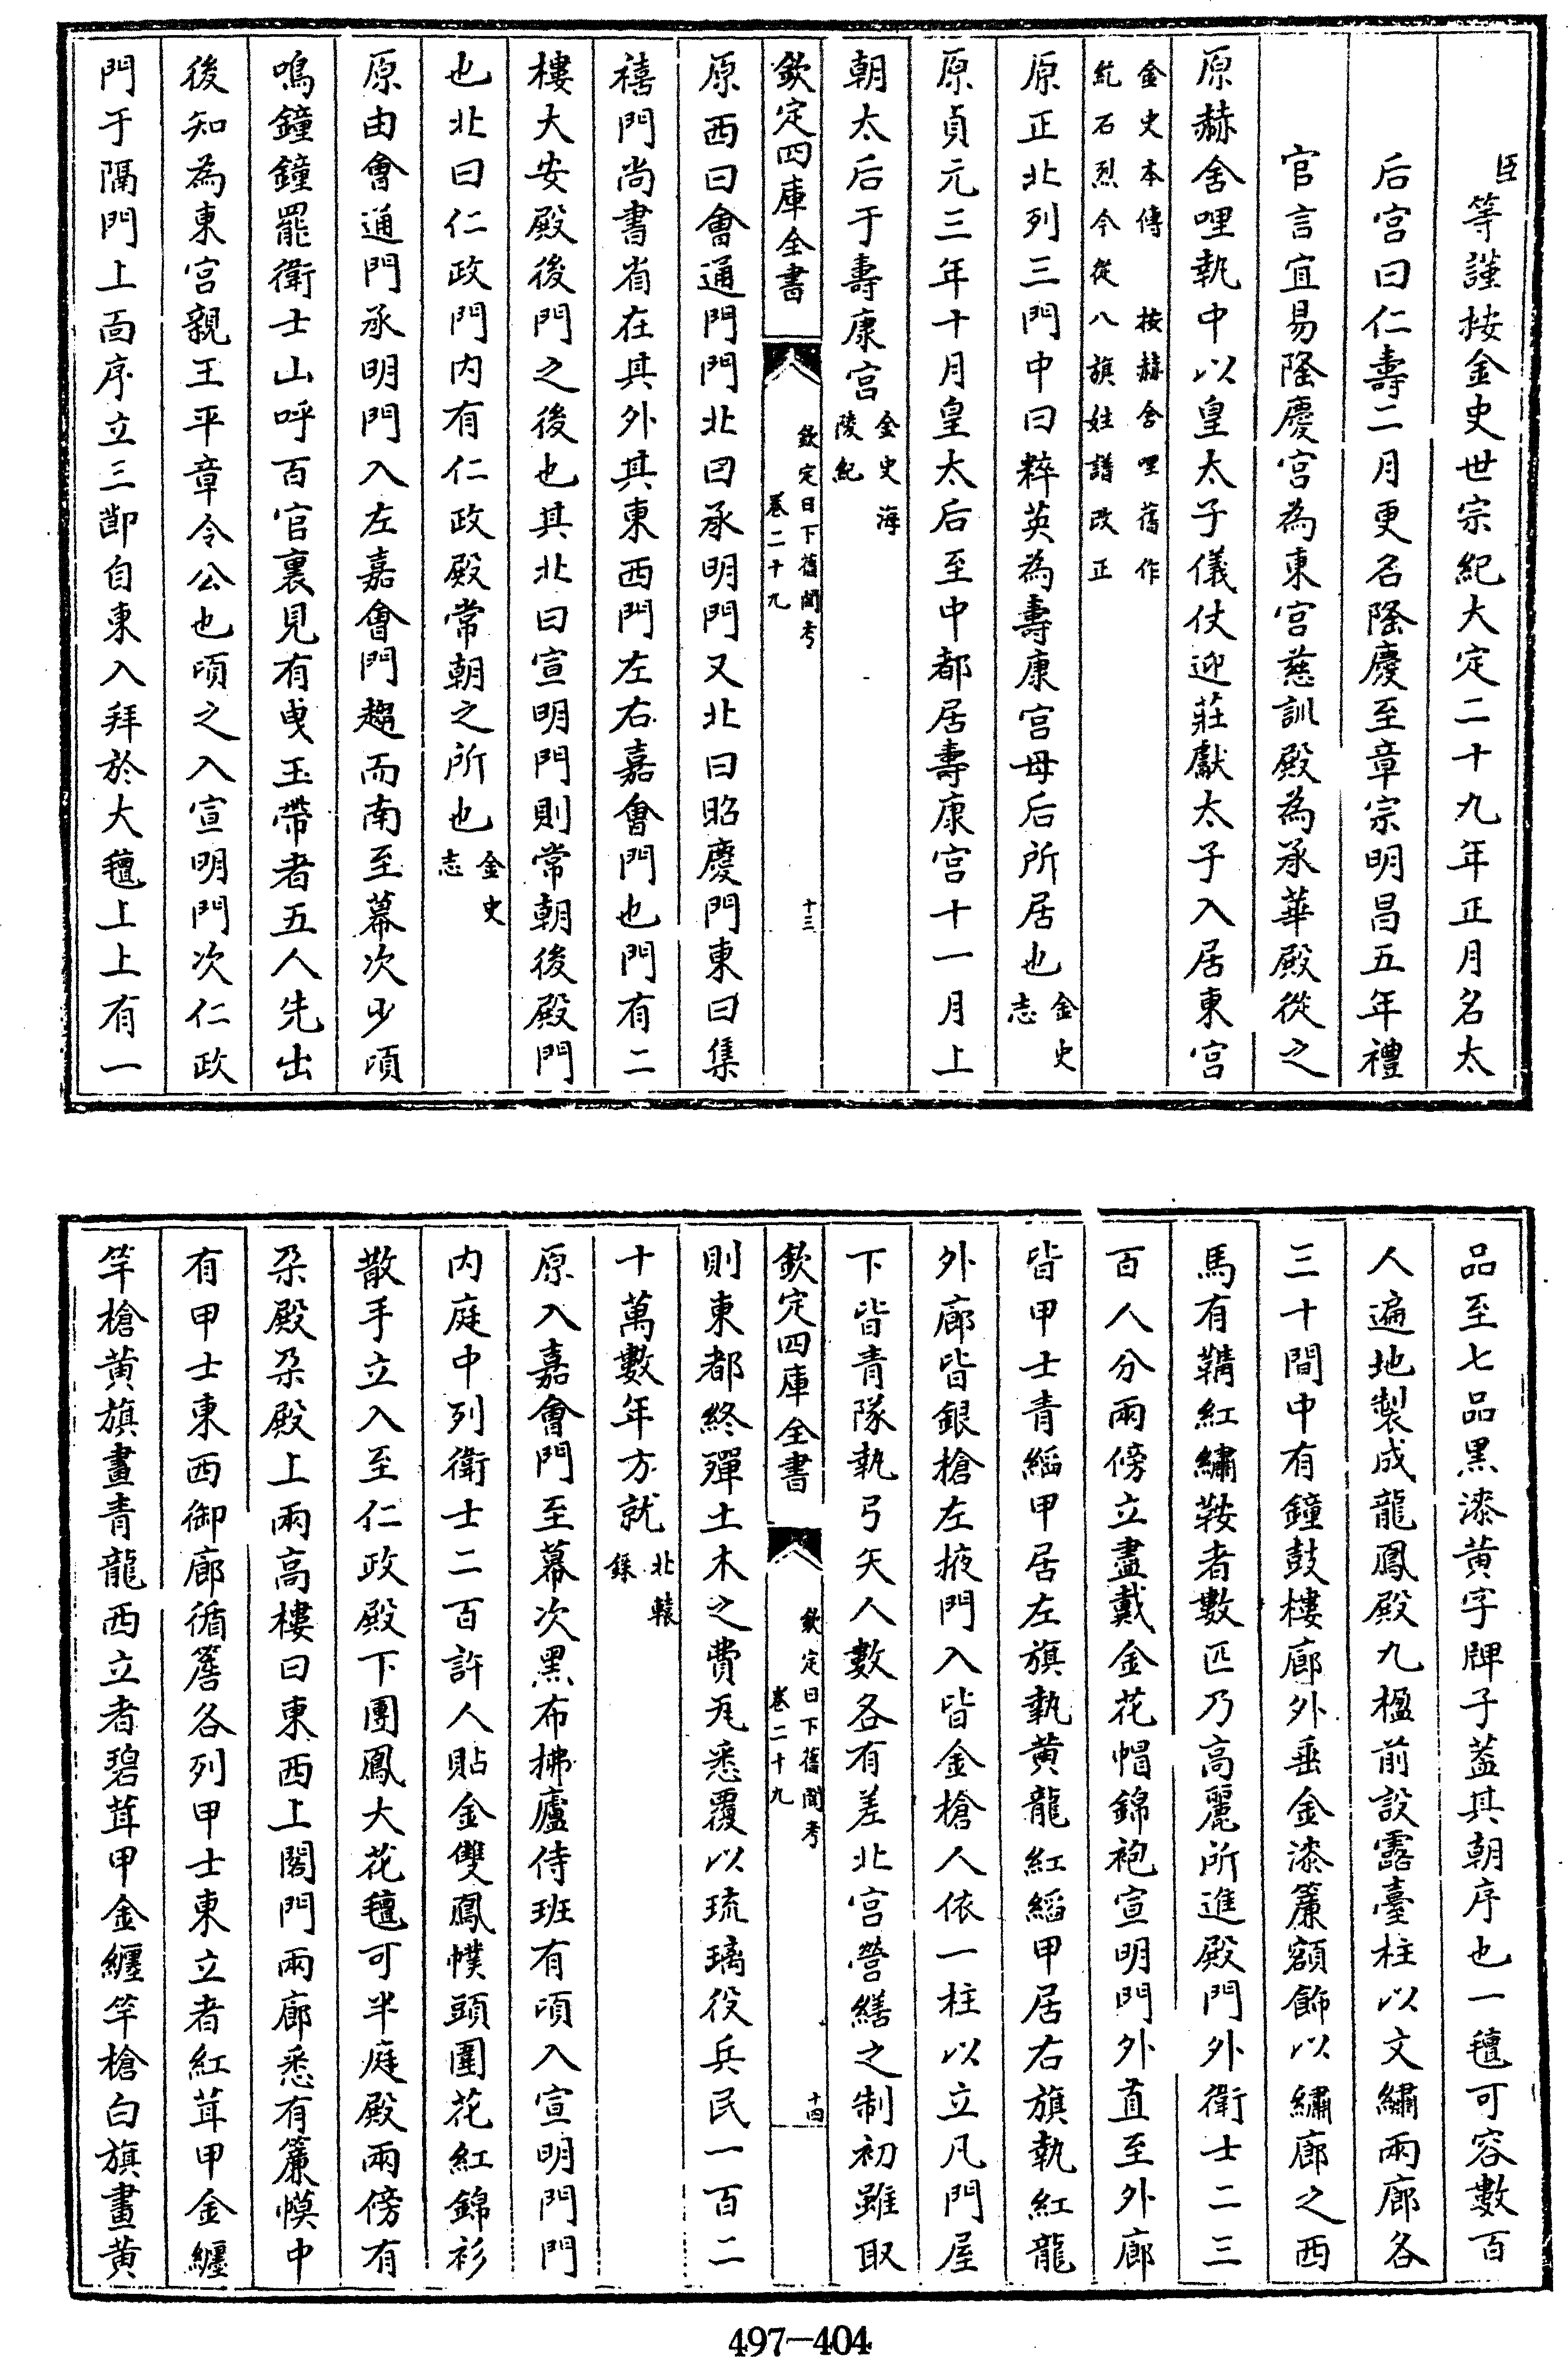 臣等謹按金史世宗紀大定二十九年正月名太
后宫曰仁壽二月更名隆慶至章宗明昌五年禮
官言宜易隆慶宫為東宫慈訓殿為承華殿從之
原赫舍哩執中以皇太子儀仗迎莊獻太子入居東宫
金史本傳　按赫舍哩舊作
紇石烈今從八旗姓譜改正
原正北列三門中曰粹英為壽康宫母后所居也金史志
原貞元三年十月皇太后至中都居壽康宫十一月上
朝太后于壽康宫金史海陵紀
欽定四庫全書
欽定日下舊聞考
卷二十九
十三
原西曰會通門門北曰承明門又北曰昭慶門東曰集
禧門尚書省在其外其東西門左右嘉會門也門有二
樓大安殿後門之後也其北曰宣明門則常朝後殿門
也北曰仁政門内有仁政殿常朝之所也金史志
原由會通門承明門入左嘉會門趨而南至幕次少頃
鳴鐘鐘罷衛士山呼百官裏見有曳玉帶者五人先出
後知為東宫親王平章令公也頃之入宣明門次仁政
門于隔門上面序立三節自東入拜於大氊上上有一
品至七品黑漆黄字牌子蓋其朝序也一氊可容數百
人遍地製成龍鳳殿九楹前設露臺柱以文繡兩廊各
三十間中有鐘鼓樓廊外垂金漆簾額飾以繡廊之西
馬有鞲紅繡鞍者數匹乃高麗所進殿門外衛士二三
百人分兩傍立盡戴金花帽錦袍宣明門外直至外廊
皆甲士青縚甲居左旗執黄龍紅縚甲居右旗執紅龍
外廊皆銀槍左掖門入皆金槍人依一柱以立凡門屋
下皆青隊執弓矢人數各有差北宫營繕之制初雖取
欽定四庫全書
欽定日下舊聞考
卷二十九
十四
則東都終殫土木之費瓦悉覆以琉璃役兵民一百二
十萬數年方就北轅錄
原入嘉會門至幕次黑布拂廬侍班有頃入宣明門門
内庭中列衛士二百許人貼金雙鳳幞頭團花紅錦衫
散手立入至仁政殿下團鳳大花氊可半庭殿兩傍有
朶殿朶殿上兩高樓曰東西上閤門兩廊悉有簾幙中
有甲士東西御廊循簷各列甲士東立者紅茸甲金纏
竿槍黄旗畫青龍西立者碧茸甲金纏竿槍白旗畫黄
497-404